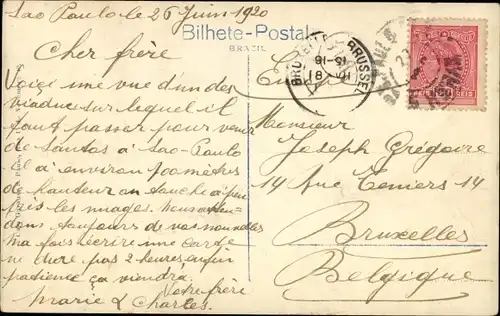 Sao Paulo le 26 Juin 1920
Bilhete-Postal
BRAZIL
Cher frère
Voiçi une vue d'un des
viaduc sur lequel il
faut passer pour venir
de Santos à Sao-Paulo
il a environ 700 mètres
de hauteur on touche à peu
près les nuages. Nous atten-
dons toujours de vos nouvelles
Ma fois écrire une carte
ne dure pas 2 heures, enfin
patience ça viendra.
Votre frère
Marie & Charles.
Monsieur
Joseph Grégoire
14 Rue Teniers 14
Bruxelles
Belgique
BRUSSEL